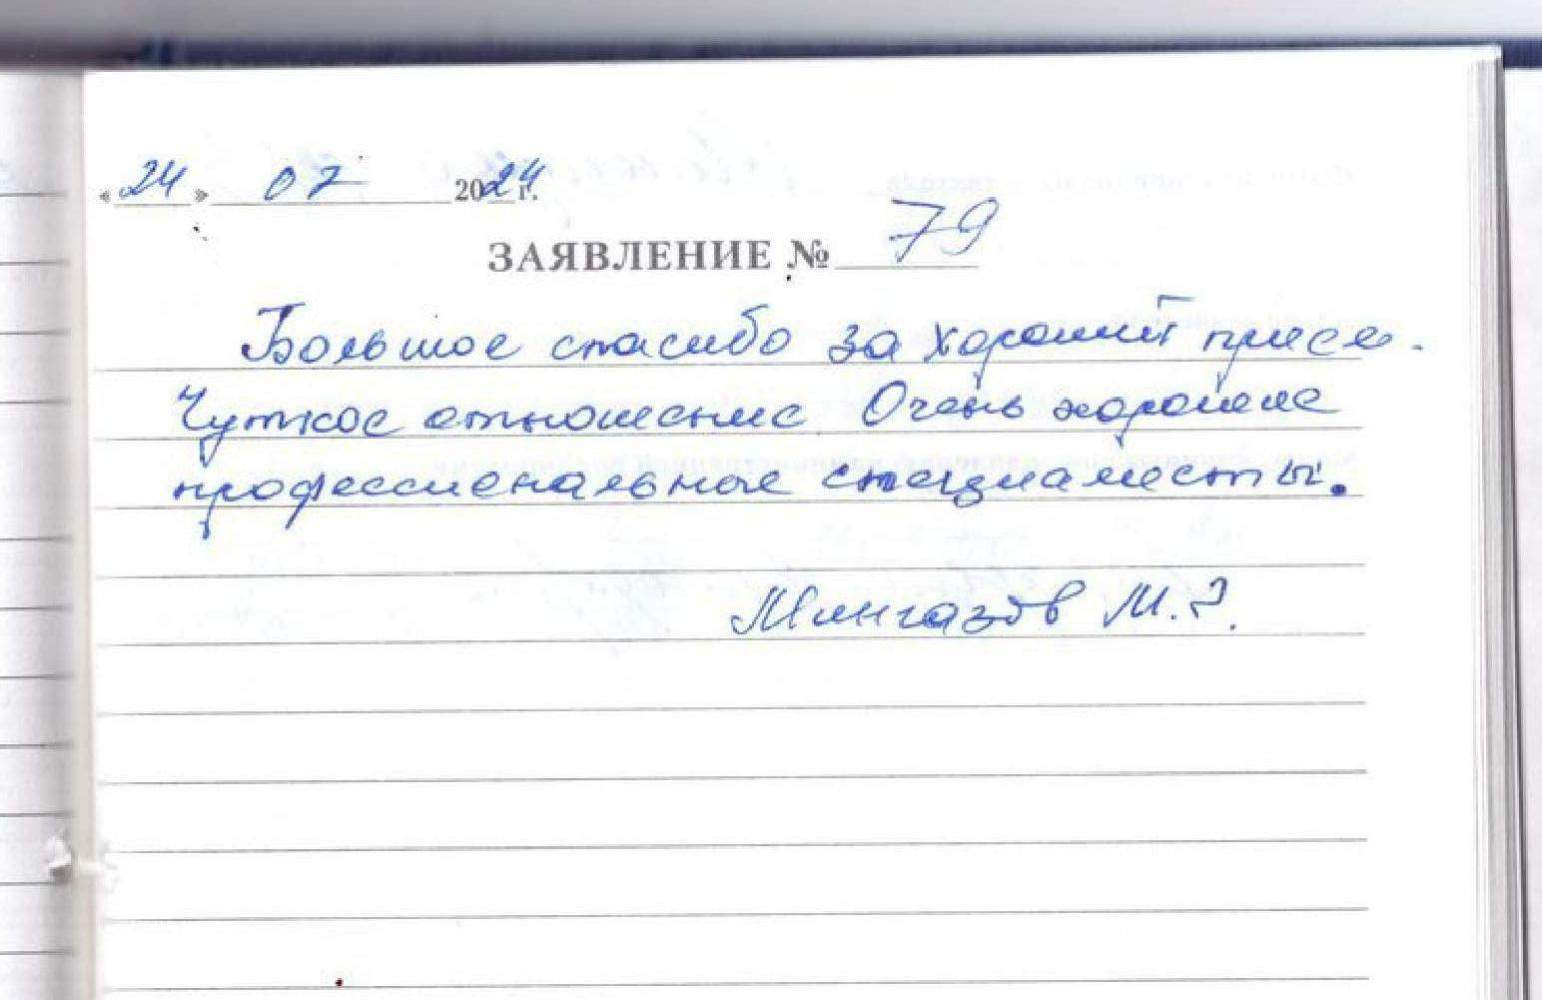 «24» 07 2024 г.
ЗАЯВЛЕНИЕ № 79
Большое спасибо за хороший прием.
Чуткое отношение. Очень хорошие
профессиональные специалисты.
Мингазов М.З.